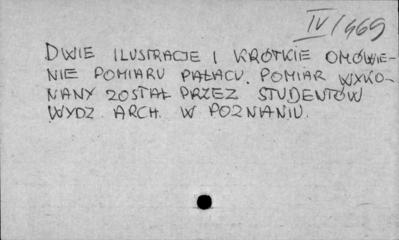 IV/669
DWIE ILUSTRACJE I KRÓTKIE OMÓWIE-
NIE POMIARU PAŁACU. POMIAR WYKO-
NANY ZOSTAŁ PRZEZ STUDENTÓW
WYDZ. ARCH. W POZNANIU.